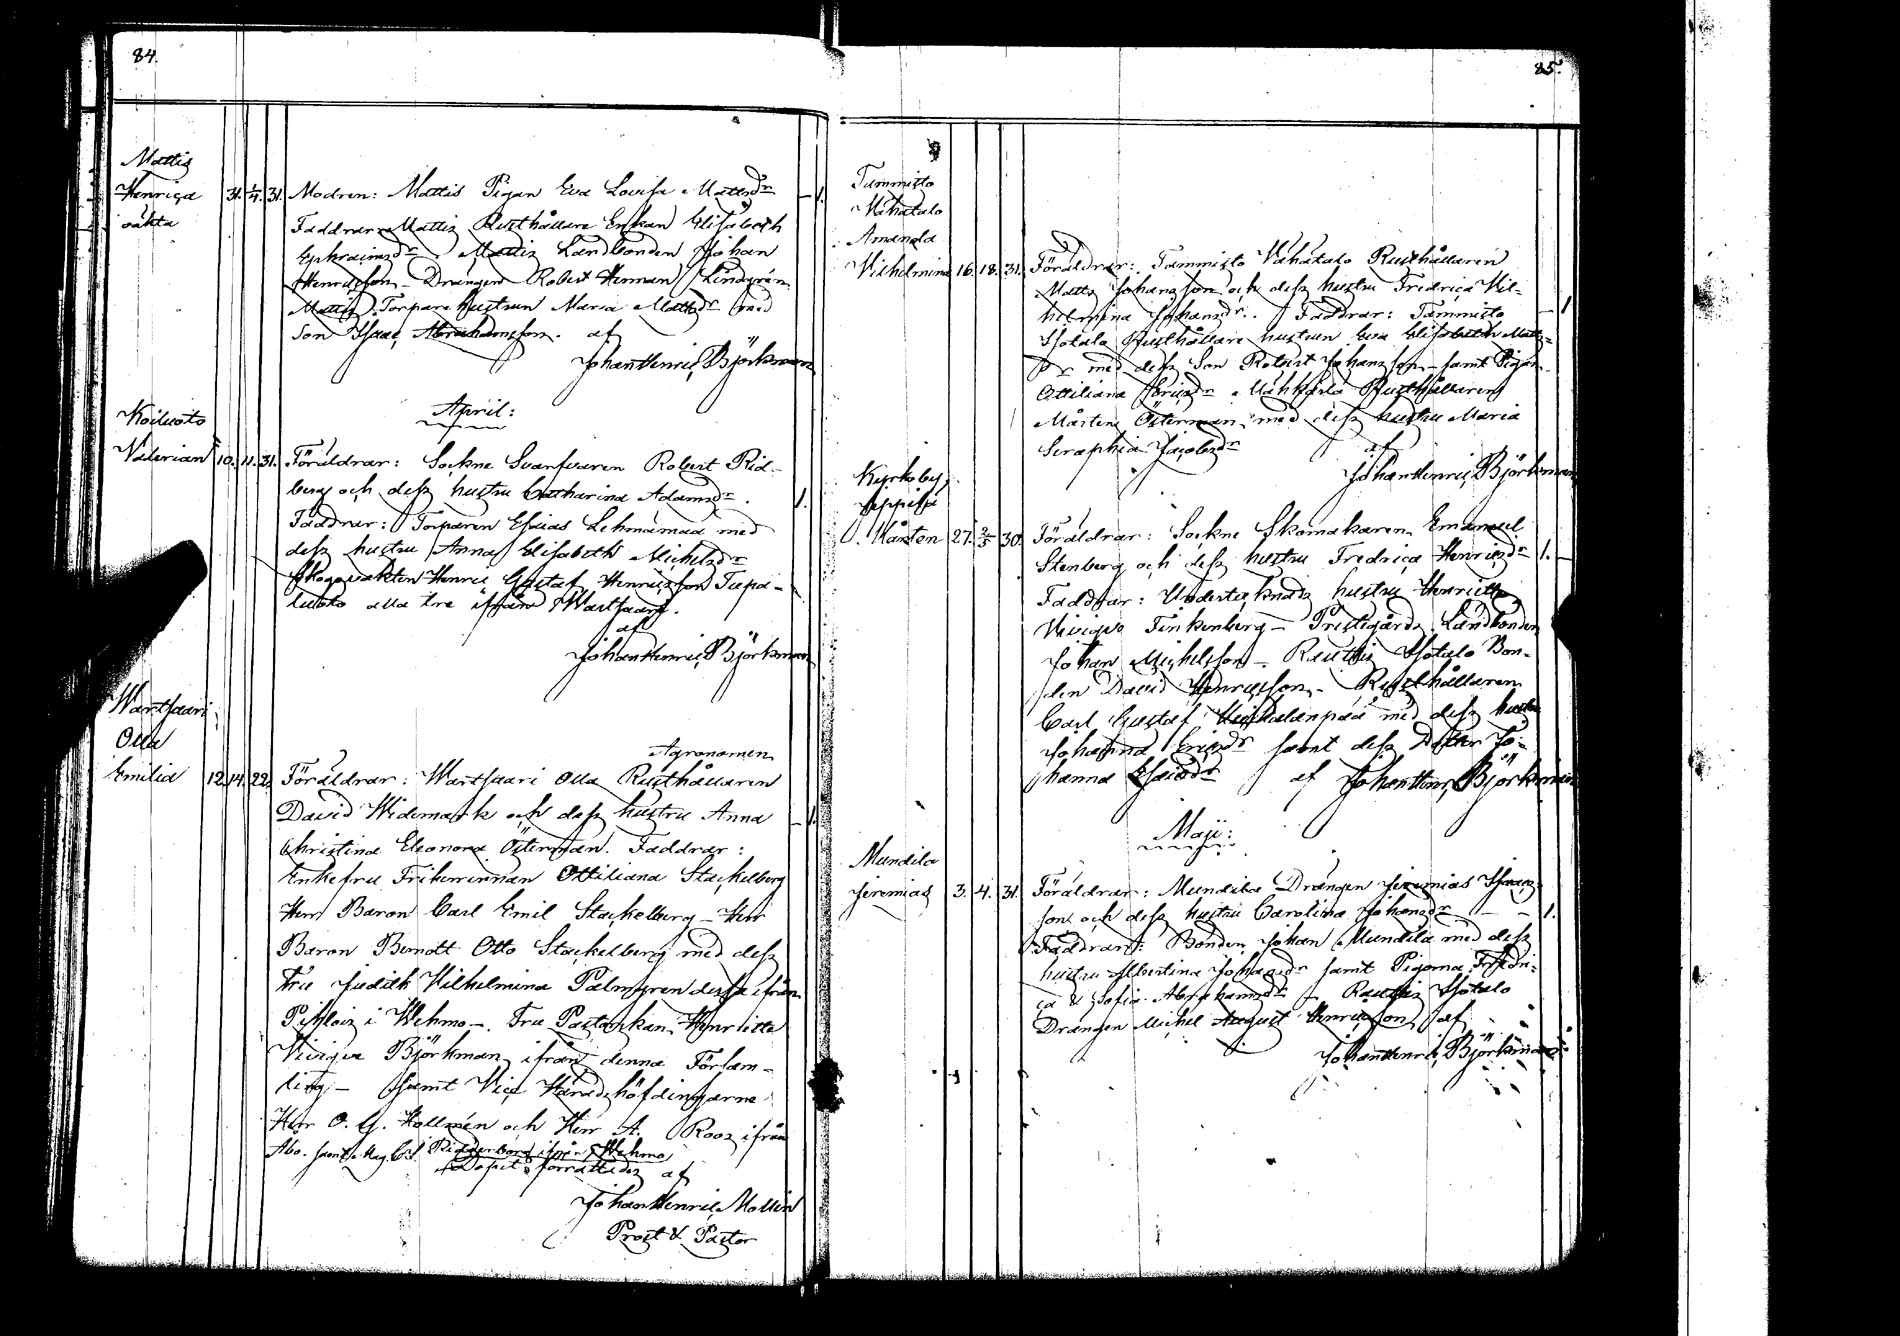 84.
Mattis
Henrica 31. 1/4. 31. Modren: Mattis Pigan Eva Lovisa Mattsdr — 1.
oäkta
Faddrar: Mattis Rusthållare Enkan Elisabeth
Ephraimsdr Mattis Landbonden Johan
Henricsson – Drängen Robert Herman Lindgrén
Mattis Torpare hustrun Maria Mattsdr med
Son Isaac Abrahamsson. af
Johan Henric Björkman
April:
Koiluoto
Valerian 10. 11. 31. Föräldrar: Sockne Svarfvaren Robert Rid-
berg och dess hustru Catharina Adamsdr. 1.
Faddrar: Torparen Esaias Lehmämaa med
dess hustru Anna Elisabeth Michelsdr
Skogsvakten Henric Gustaf Henricsson
luoto alla tre ifrån Wartsaari.
af
Johan Henric Björkman
Wartsaari
Olla
Emilia 12. 14. 22. Agronomen
Föräldrar: Wartsaari Olla Rusthållaren
David Widemark och dess hustru Anna — 1.
Christina Eleonora Österman. Faddrar:
Enkefru Friherrinnan Ottiliana Stackelberg
Herr Baron Carl Emil Stackelberg – Herr
Baron Berndt Otto Stackelberg med dess
Fru Judith Vilhelmina Palmgren dessa ifrån
i Wehmo –. Fru Pastorskan Henrietta
Björkman ifrån denna Försam-
ling – Samt Vice Häradshöfdingarne
Herr O. G. Hollmén och Herr A. Roos ifrån
Åbo. samt Mag. ifrån Wehmo
Dopet förrättades af
Johan Henric Mollin
Prost & Pastor
85.
Tammisto
Vähätalo
Amanda
Vilhelmina 16. 18. 31. Föräldrar: Tammisto Vähätalo Rusthållaren
Matts Johansson och dess hustru Fredrica Vil-
helmina Johansdr. Faddrar: Tammisto — 1
Isotalo Rusthållare hustrun Eva Elisabeth Matts-
dr med dess Son Robert Johansson – samt Pigan
Ottiliana Ericsdr Rusthållaren
Mårten Österman med dess hustru Maria
Seraphia Jacobsdr af
Johan Henric Björkman
Kyrkoby,
Seppilä
Mårten 27. 2/5 30. Föräldrar: Sockne Skomakaren Emanuel
Stenberg och dess hustru Fredrica Henricsdr 1. –
Faddrar: Undertecknads hustru Henrietta
Finkenberg – Prestgårds Landbonden
Johan Michelsson – Isotalo Bon-
den David Henricsson – Rusthållaren
Carl Gustaf med dess hustru
Johanna Ericsdr samt dess Dotter Jo-
hanna Esaiedr af Johan Henr. Björkman
Maji:
Mundila
Jeremias 3. 4. 31. Föräldrar: Mundila Drängen Jeremias Isaacs-
son och dess hustru Carolina Johansdr – – 1.
Faddrar: Bonden Johan Mundila med dess
hustru Albertina Johansdr samt Pigorna Fredri-
ca & Sofia Abrahamsdr – Isotalo
Drängen Michel August Henricsson af
Johan Henric Björkman